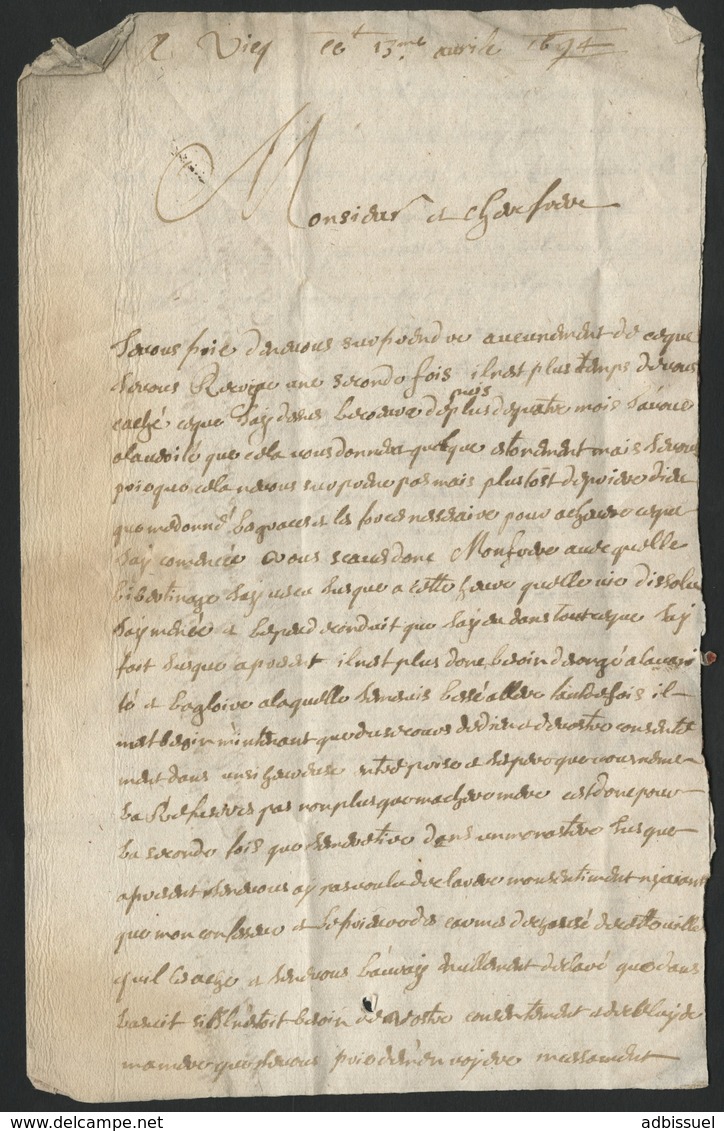 A Vicq ce 13me avrile 1694
Monsieur et cher frere
Je vous prie de ne vous surprendre aucunement de ce que
Je vous une seconde fois il nest plus temps de vous
caché ce que Jay dans le coeure depuis plus de quatre mois Javoue
a la verité que cela vous donnera quelque estonement mais Je vous
prie que cela ne vous surprene pas mais plus tost de priere dieu
que me donne la grace et la force nessesaire pour achevere ce que
Jay comencée vous scaves donc Mon frere avec quelle
libertinage Jay vecu Jusque a cette heure quelle vie dissolue
Jay menée et le peu de conduit que Jay eu dans tout ce que Jay
fait Jusque a present il nest plus donc besoin de songé a la vani
té et la gloire a laquelle Je me suis lessé allere toutte fois il
mest besoin mintenant que du secours de dieu et de vostre consente
ment dans une si heureuse entreprise et Jespere que vous ne me
la Refuseres pas non plus que ma chere mere cest donc pour
la seconde fois que Je me retire dans un monastere Jusque
a present Je ne vous ay pas voulu declarere mon sentiment nayant
que mon confesseur et le prieur des carmes de
qui le sache et Je ne vous nullement declaré que dans
la suit sil nestoit besoin de vostre consentement et de celuy de
ma mere que Je vous prie de men voyere